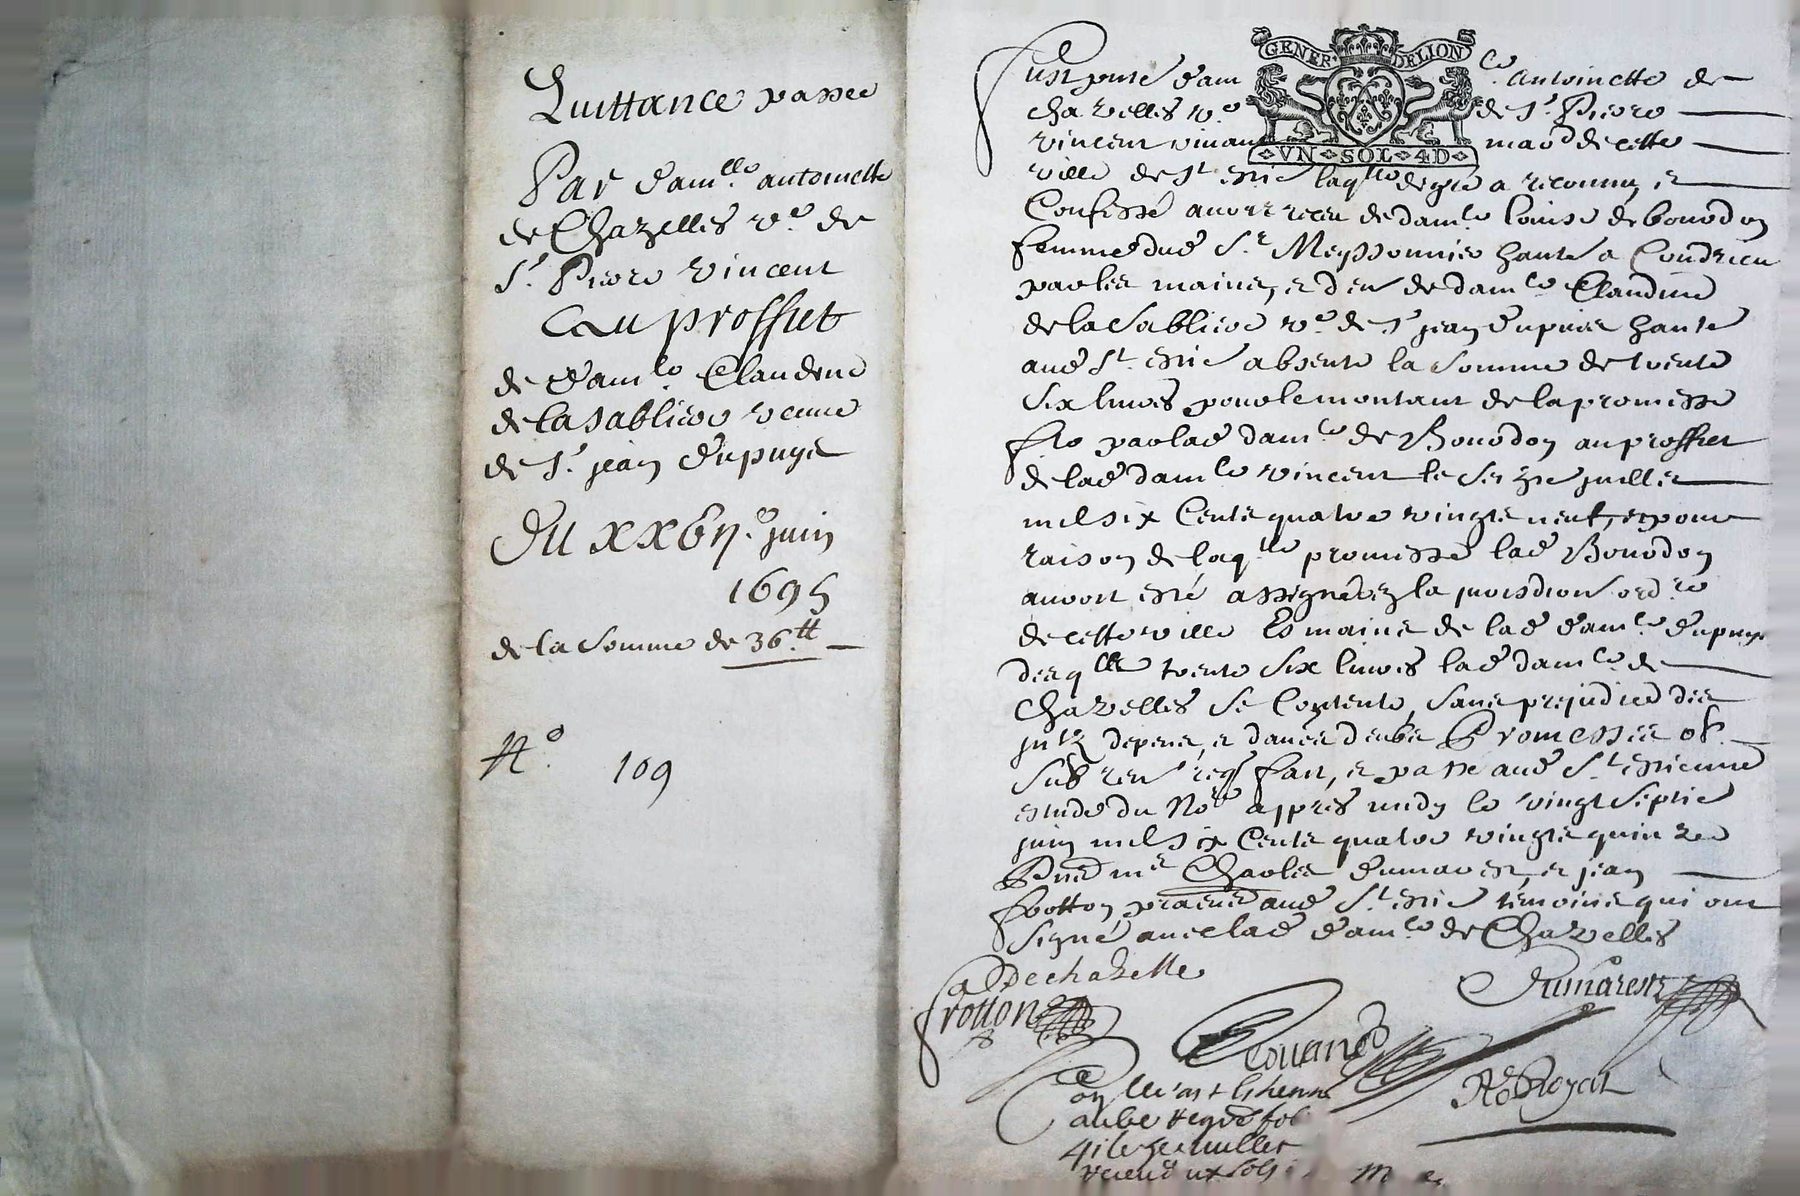 Quittance passee
Par dam.lle antoinette
de Chazelles v.e de
S.r Pierre vincent
Au proffict
de dam.le Claudine
de la sabliere veuve
de S.r jean dupuys
Du xxvij.e juin
1695
de la somme de 36.tt
N.o 109
GENER DELION
VN SOL 4D
fust pnte dam le antoinette de
Chazelles v.e de S.r Pierre
vincent vivant mard de cette
ville de St Estie laqlle de gre a reconnu, et
Confessé avoir receu de dam.le louise de bourdon
femme dud S.r Meyssonnier hante a Condrieu
par les mains, et den de dam.le Claudine
de la Sabliere v.e de S.r jean dupuis hante
aud St Estie absente la somme de trente
six livres pour le montant de la promesse
fte par lad dam.le de Bourdon au proffict
de lad dam.le vincent le seizie juillet
mil six Cents quatre vingts neuf, et pour
raison de laqlle promesse lad Bourdon
avoit esté assignée en la jurisdion ordre
de cette ville Es mains de lad dam.le dupuys
desqlles trente six livres lad dam.le de
Chazelles se Contente, sans prejudice des
depens, et Promesses ob.
fait, et passe aud St Estienne
estude du Nore appres midy le vingt septie
juin mil six Cents quatre vingts quinze
Pnts me Charles dumarest, et jean
frotton aud St Estie témoins qui ont
signé avec lad dam.le de Chazelles
Dechazelle
frotton
Dumarest
Royet